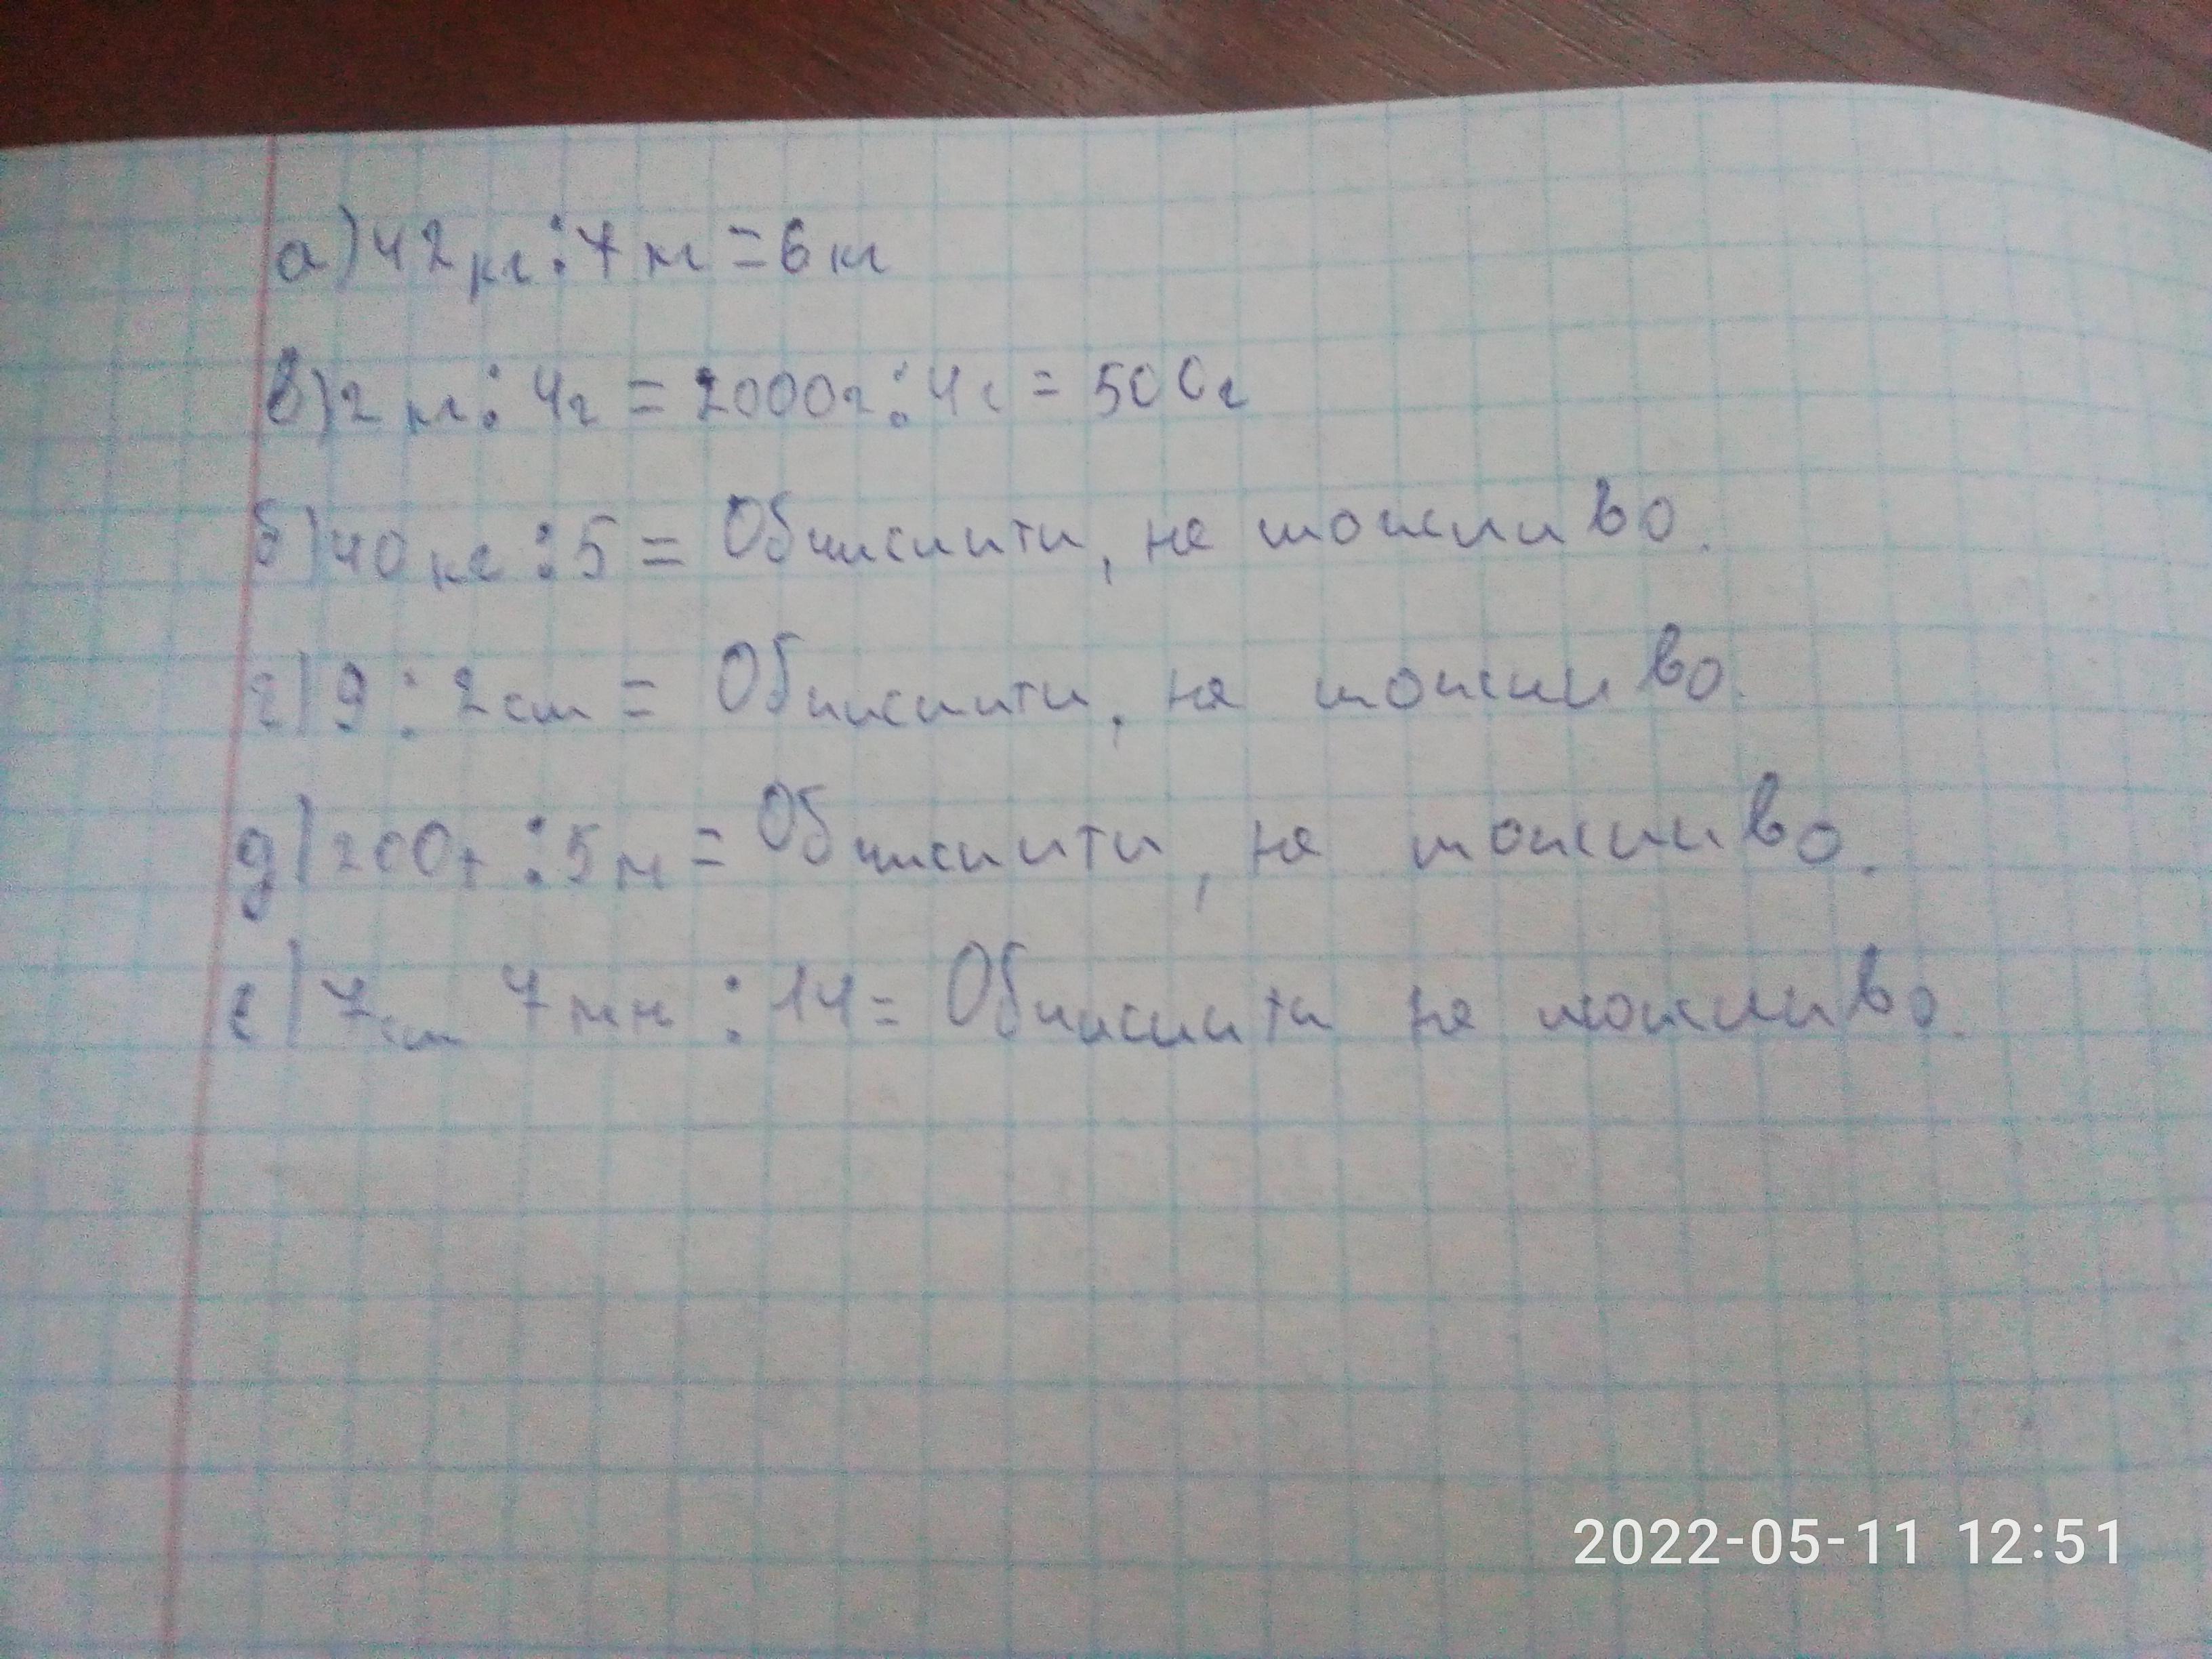 а) 42кг : 7 кг = 6 кг
в) 2 кг : 4г = 2000г : 4г = 500г
б) 40 кг : 5 = Обчислити, не можливо.
г) 9 : 2 см = Обчислити, не можливо.
д) 200г : 5 м = Обчислити, не можливо.
е) 7см 7мм : 14 = Обчислити не можливо.
2022-05-11 12:51